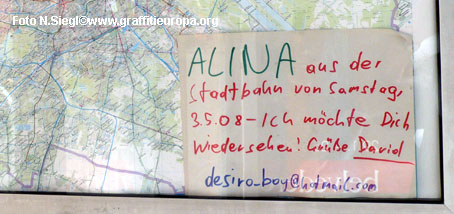 Foto N.Siegl©www.graffitieuropa.org
ALINA aus der
Stadtbahn von Samstag,
3.5.08-Ich möchte Dich
Wiedersehen! Grüße David
desiro_boy@hotmail.com